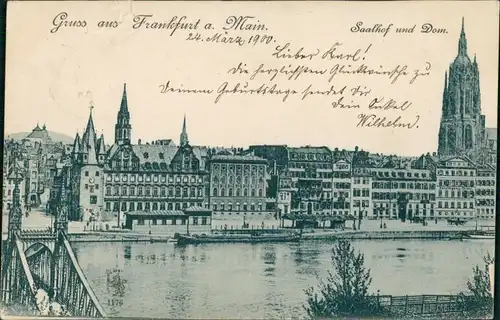 Gruss aus Frankfurt a. Main.
Saalhof und Dom.
24. März 1900
Lieber Karl!
die herzlichsten Glückwünsche zu
Deinem Geburtstage sendet Dir
Dein Onkel
Wilhelm.
1176